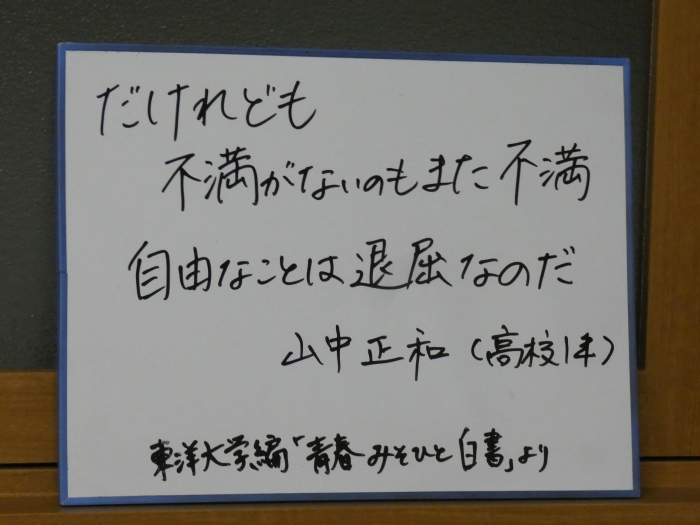 だけれども
不満がないのもまた不満
自由なことは退屈なのだ
山中正和(高校1年)
東洋大学編「青春みそひと白書」より